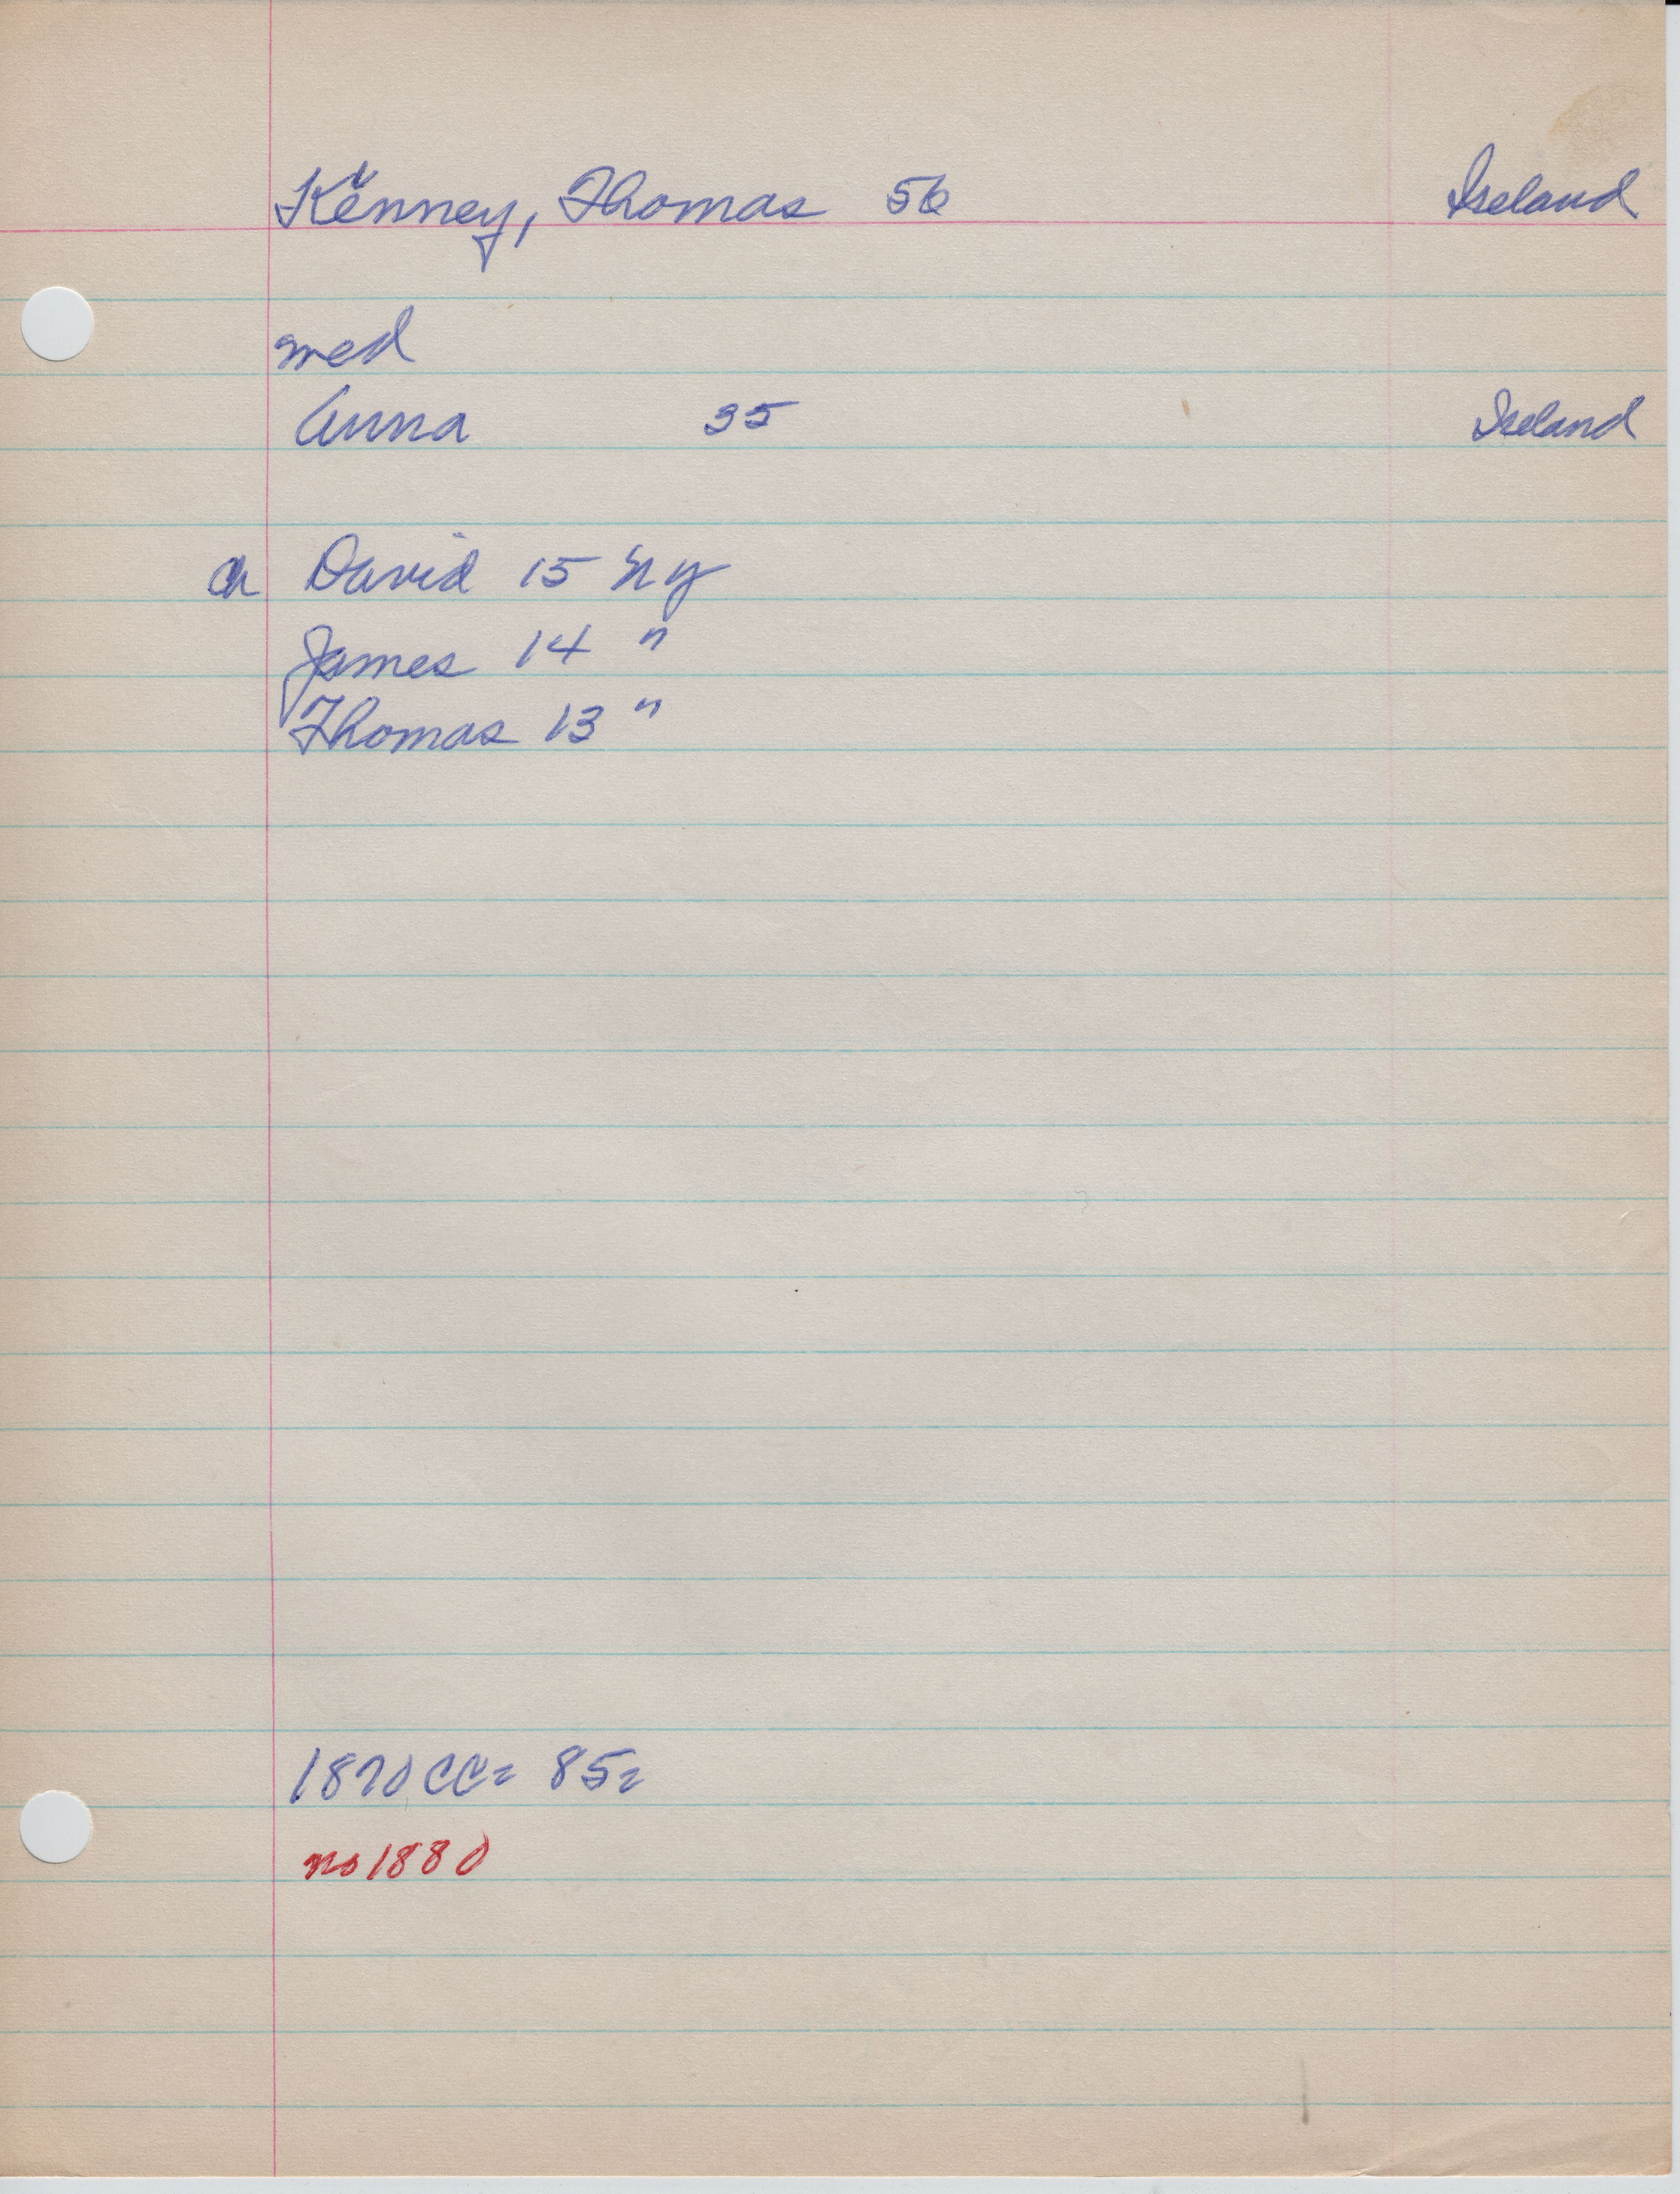 Kenney, Thomas 56 Ireland
med
Anna 35 Ireland
ch David 15 Ny
James 14 "
Thomas 13 "
1870 CC= 85=
no 1880